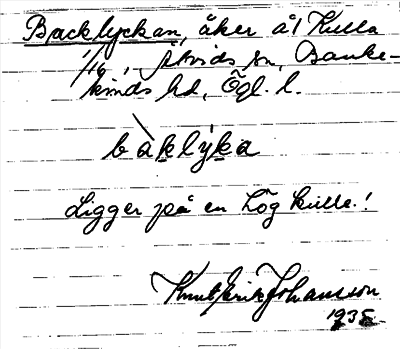 Backlyckan, åker å! Kulla
1/16, Åtvids sn, Banke-
kinds hd, Ögl. l.
bàklýka
Ligger på en hög kulle!
Knut Erik Johansson
1935